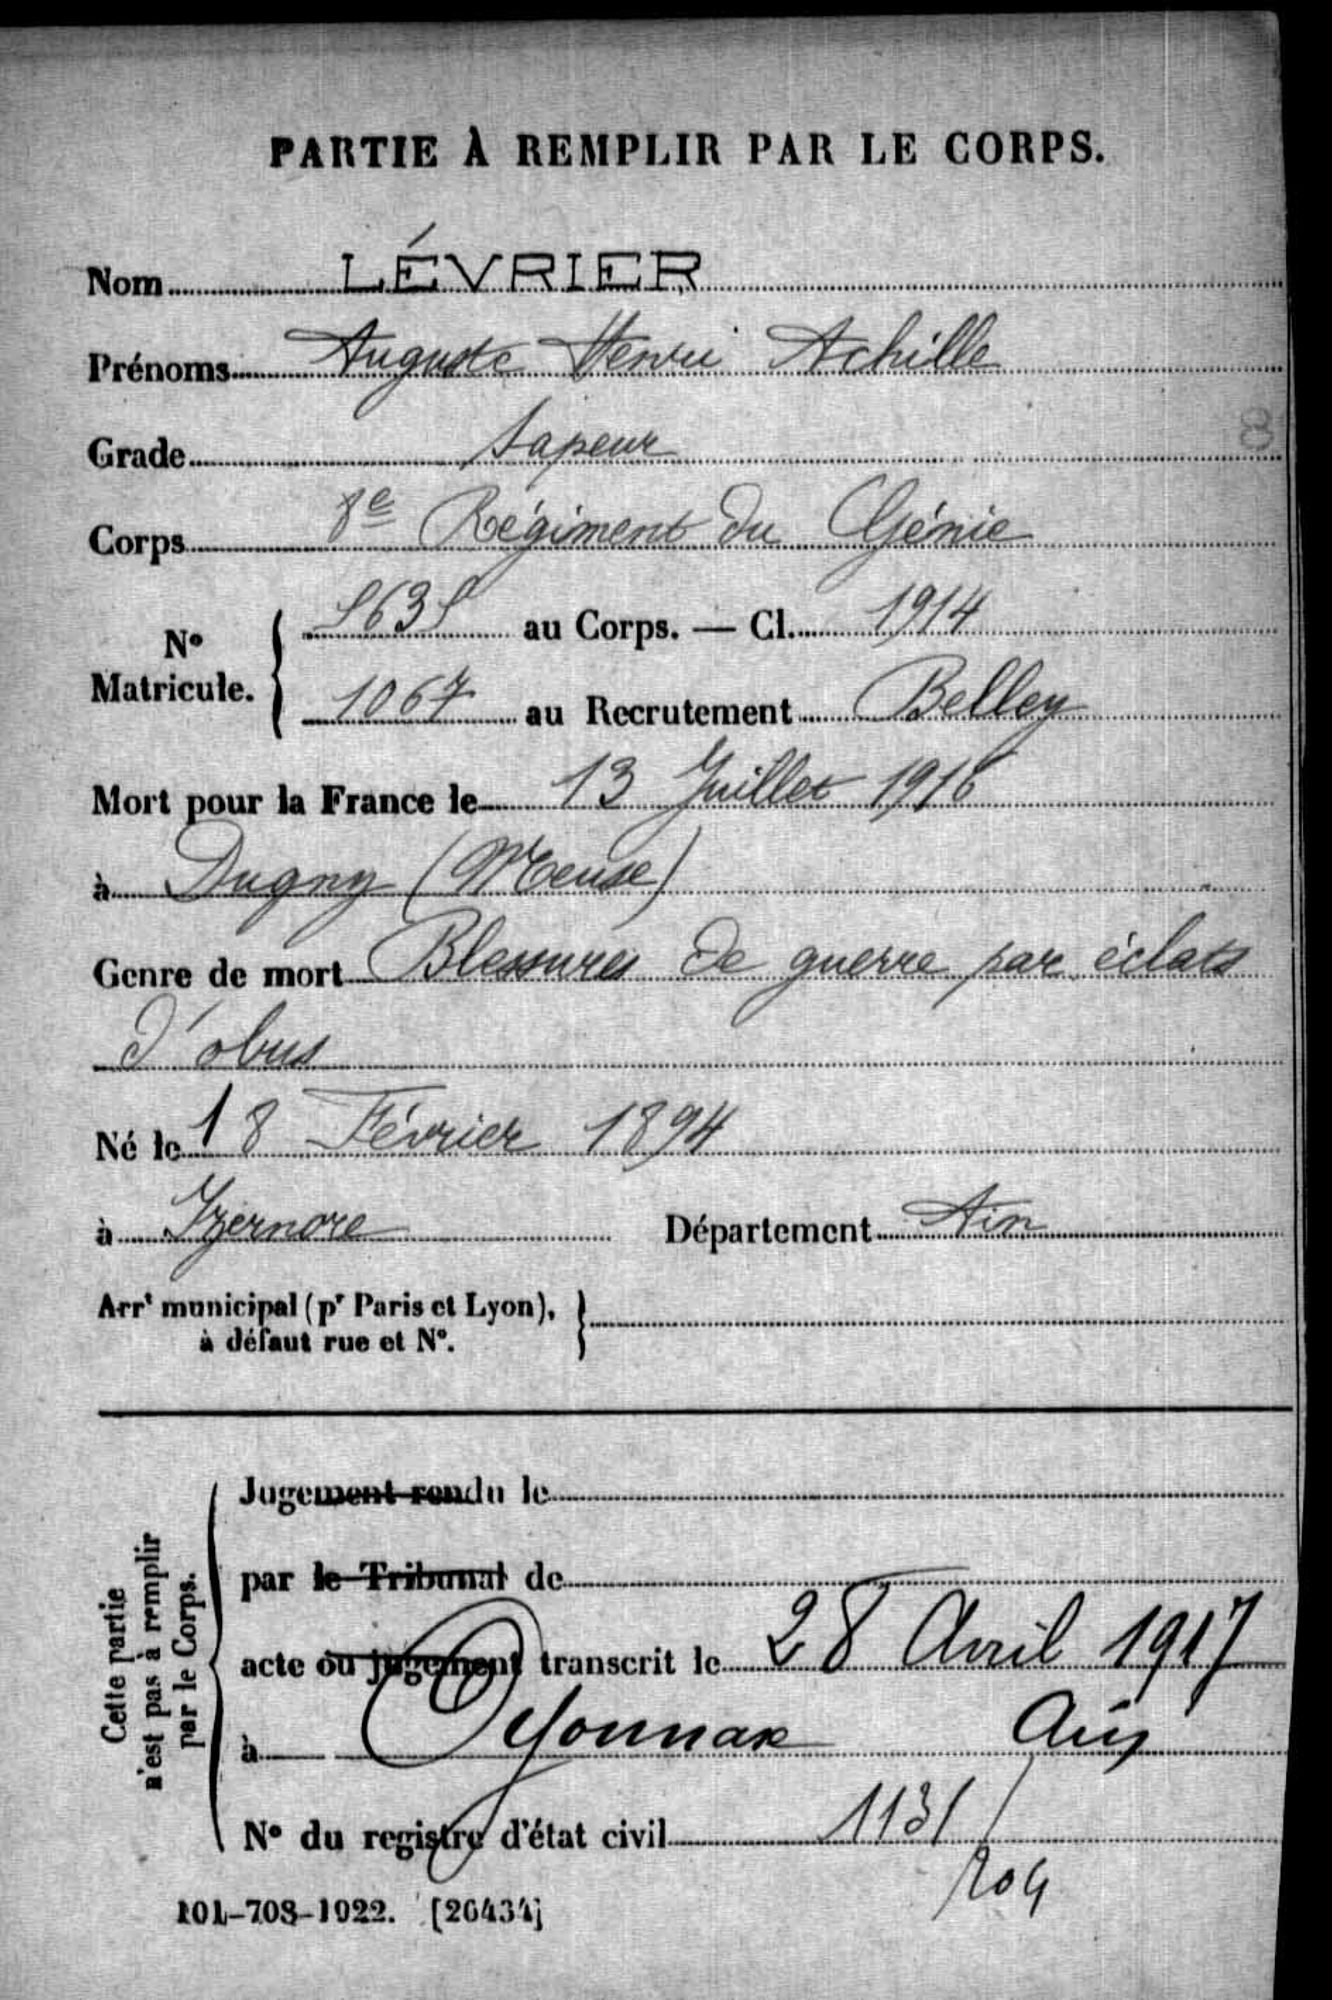 PARTIE À REMPLIR PAR LE CORPS.
Nom LÉVRIER
Prénoms Auguste Henri Achille
8
Grade Sapeur
Corps 8e Régiment du Génie
No Matricule. { au Corps. — Cl. 1914
1067 au Recrutement Belley
Mort pour la France le 13 Juillet 1916
à Dugny (Meuse)
Genre de mort Blessures de guerre par éclats
d'obus
Né le 18 Février 1894
à Izernore Département Ain
Arrt municipal (pr Paris et Lyon),
à défaut rue et No.
Cette partie
n'est pas à remplir
par le Corps.
Jugement rendu le
par le Tribunal de
acte ou jugement transcrit le 28 Avril 1917
à Oyonnax Ain
No du registre d'état civil 1131/
204
101-708-1922. [26434]